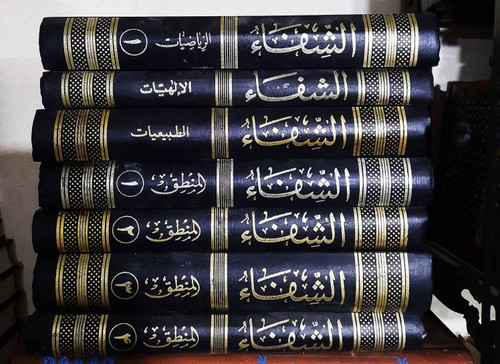 الشِّفَاءُ الرياضيات ١
الشِّفَاءُ الالهيات
الشِّفَاءُ الطبيعيات
الشِّفَاءُ المنطق ١
الشِّفَاءُ المنطق ٢
الشِّفَاءُ المنطق ٣
الشِّفَاءُ المنطق